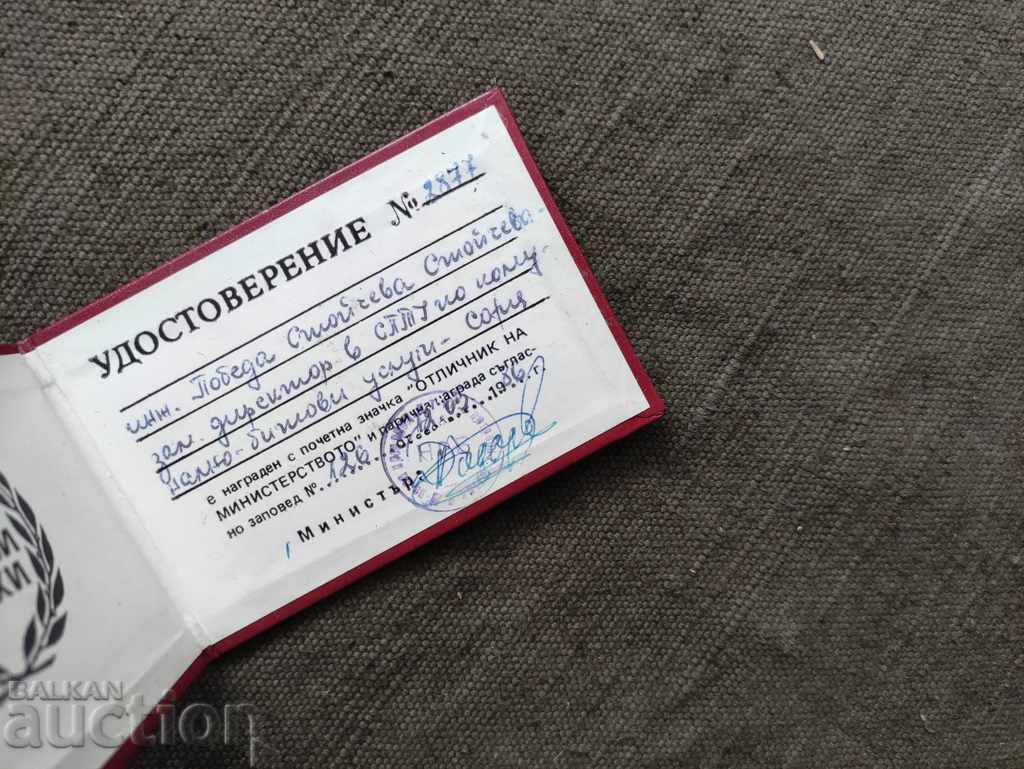 УДОСТОВЕРЕНИЕ № 2877
инж. Победа Стойчева Стойчева-
зам. директор в СПТУ по кому-
нално-битови услуги-
е награден с почетна значка "ОТЛИЧНИК НА
МИНИСТЕРСТВОТО" и парична награда съглас-
но заповед № 86 г.
Министър:
И
ХИ
BALKAN
auction